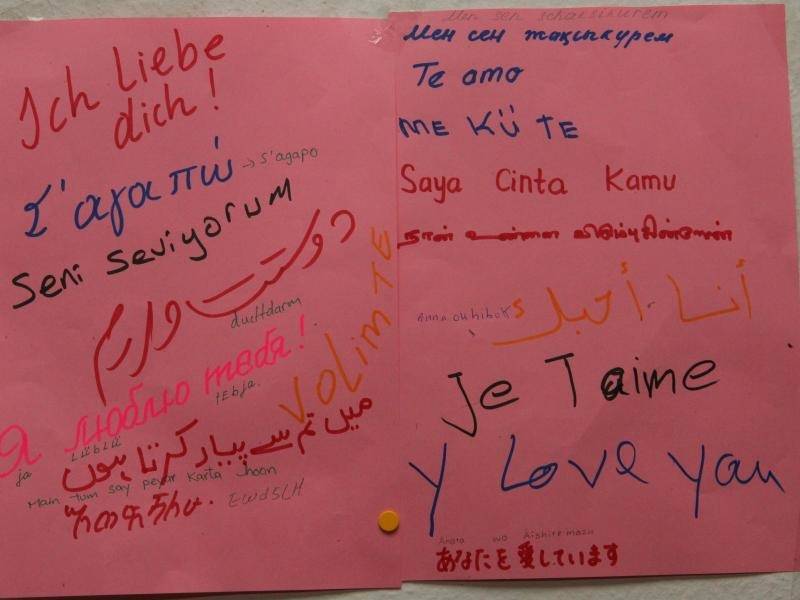 Ich liebe
dich!
Σ'αγαπώ → S'agapo
Seni seviyorum
دوستت دارم
duchtdarm
VOLIM TE
Я люблю тебя!
ja lüblü tebja.
میں تم سے پیار کرتا ہوں
Main tum say peyar karta hoon
EWdSLH
Men sen schaksikurem
Мен сен жақсыкурем
Te amo
ME KÜ TE
Saya Cinta Kamu
நான் உன்னை விரும்புகின்றேன்
أنا أحبك
Anna ouhibok
Je T'aime
Y Love you
Anata wo Aishite imasu
あなたを愛しています